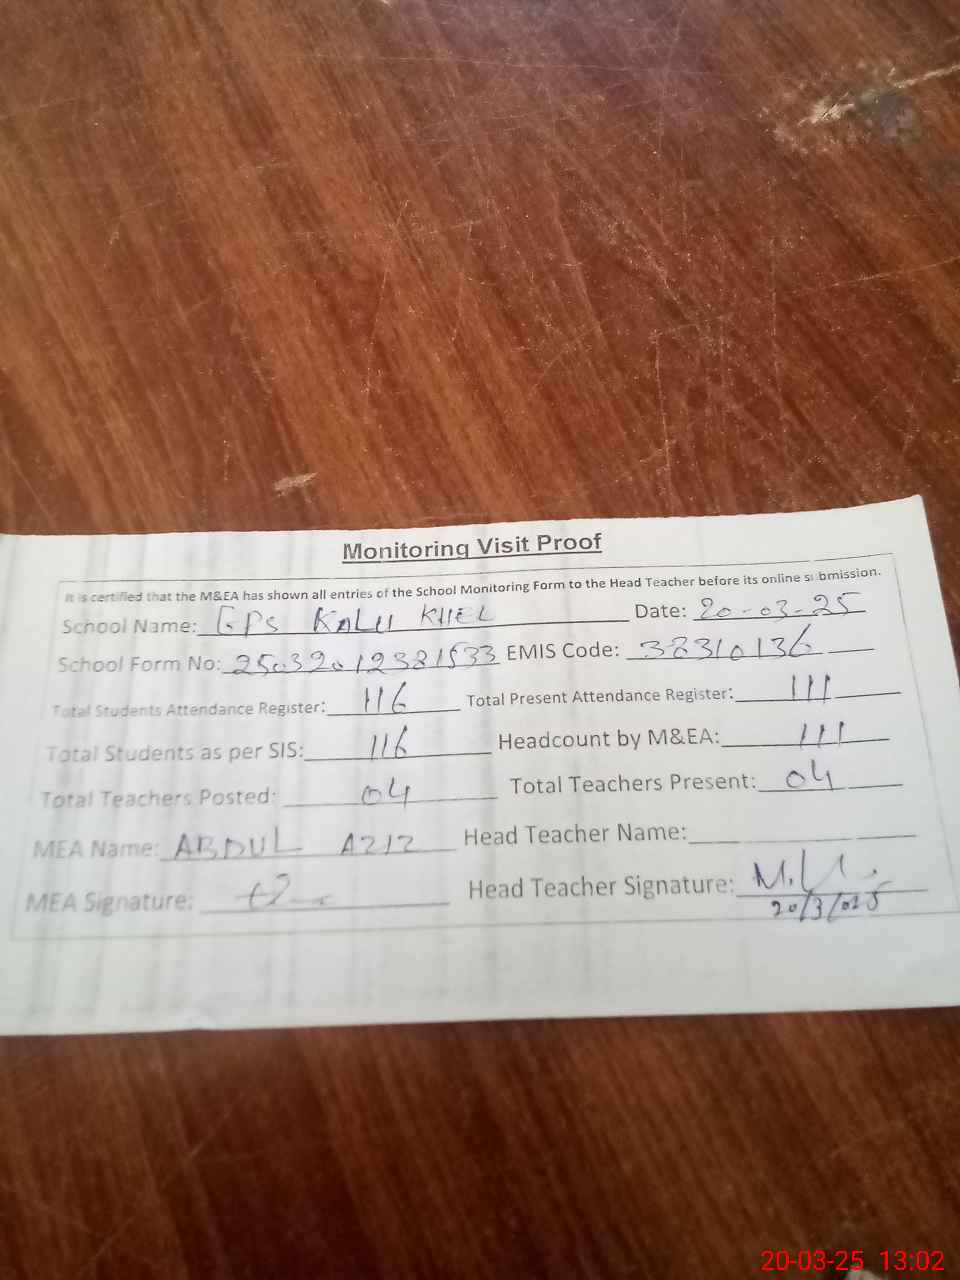 Monitoring Visit Proof
It is certified that the M&EA has shown all entries of the School Monitoring Form to the Head Teacher before its online submission.
School Name: GPS KALU KHEL Date: 20-03-25
School Form No: 25032012381533 EMIS Code: 38310136
Total Students Attendance Register: 116 Total Present Attendance Register: 111
Total Students as per SIS: 116 Headcount by M&EA: 111
Total Teachers Posted: 04 Total Teachers Present: 04
MEA Name: ABDUL AZIZ Head Teacher Name:
MEA Signature: Head Teacher Signature:
20-03-25 13:02